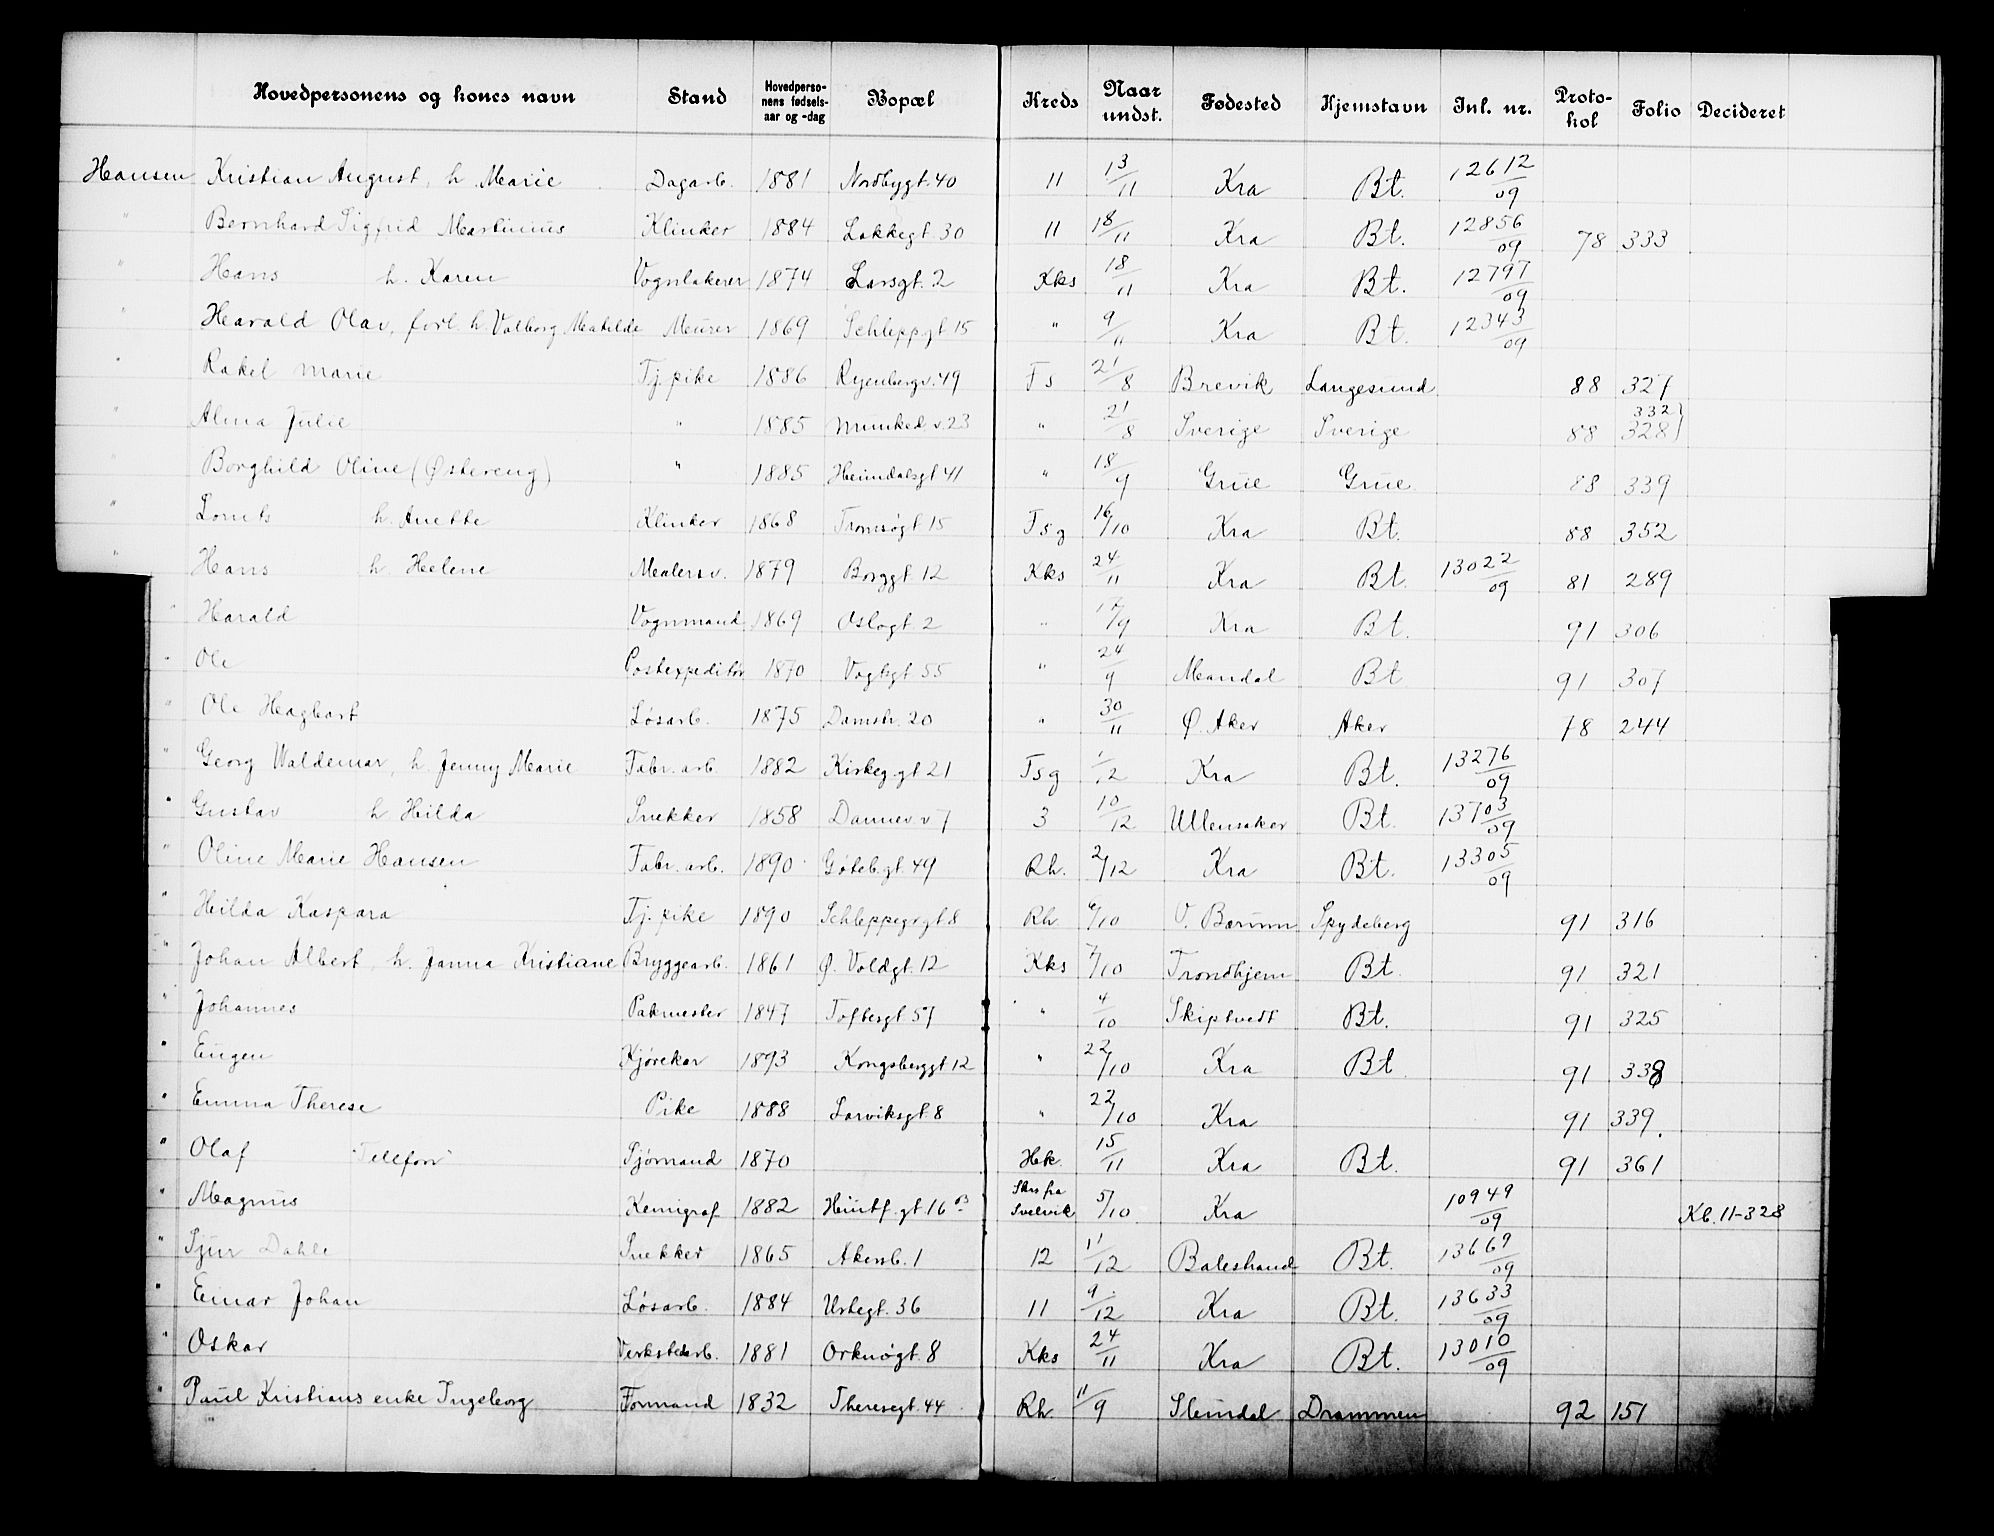 Hovedpersonens og kones navn Stand Hovedperso-nens fødsels-aar og -dag Bopæl Kreds Naar undst. Fødested Hjemstavn Inl. nr. Proto-kol Folio Decideret
Hansen Kristian August, h. Marie Dagarb. 1881 Nordbygt. 40 11 13/11 Kra Bt. 12612/09
" Bernhard Sigfrid Martinius Klinker 1884 Lakkegt. 30 11 18/11 Kra Bt. 12856/09 78 333
" Hans h. Karen Vognlakerer 1874 Larsgt. 2 Kks 18/11 Kra Bt. 12797/09
" Harald Olav, forl. h. Valborg Matilde Meurer 1869 Schleppgt 15 " 9/11 Kra Bt. 12343/09
" Rakel Marie Tj.pike 1886 Ryenbergv. 49 Fs 21/8 Brevik Langesund 88 327
" Alma Julie " 1885 Munked.v. 23 " 21/8 Sverige Sverige 88 332) 328)
" Borghild Oline (Østereng) " 1885 Heimdalsgt 41 " 18/9 Grue Grue 88 339
" Lorentz h. Anette Klinker 1868 Tromsøgt. 15 Tsg 16/10 Kra Bt. 88 352
" Hans h. Helene Malersv. 1879 Borggt. 12 Kks 24/11 Kra Bt. 13022/09 81 289
" Harald Vognmand 1869 Oslogt. 2 " 17/9 Kra Bt. 91 306
" Ole Postexpeditør 1870 Vogtsgt 55 " 24/9 Mandal Bt 91 307
" Ole Hagbart Løsarb. 1875 Damstr. 20 " 30/11 Ø. Aker Aker 78 244
" Georg Waldemar, h. Jenny Marie Fabr.arb. 1882 Kirkeg.gt 21 Tsg 1/12 Kra Bt. 13276/09
" Gustav h Hilda Snekker 1858 Dannev. v 7 3 10/12 Ullensaker Bt. 13703/09
" Oline Marie Hansen Fabr.arb. 1890 Göteb.gt. 49 Rh. 2/12 Kra Bt. 13305/09
" Hilda Kaspara Tj.pike 1890 Schleppegrgt 8 Rh. 6/10 V. Bærum Spydeberg 91 316
" Johan Albert, h. Janna Kristiane Bryggearb. 1861 Ø. Voldgt. 12 Kks 7/10 Trondhjem Bt. 91 321
" Johannes Pakmester 1847 Toftesgt 57 " 4/10 Skiptvedt Bt. 91 325
" Eugen Kjørekar 1893 Kongsberggt 12 " 22/10 Kra Bt 91 338
" Emma Therese Pike 1888 Larviksgt. 8 " 22/10 Kra 91 339.
" Olaf Tellefsen Sjømand 1870 Hek. 15/11 Kra Bt. 91 361
" Magnus Kemigraf 1882 Huitf.gt. 16 B Skrs fra Svelvik 5/10 Kra 10949/09 Kb. 11-328
" Sjur Dahle Snekker 1865 Akersb. 1 12 11/12 Balestrand Bt. 13669/09
" Einar Johan Løsarb. 1884 Urtegt. 36 11 9/12 Kra Bt. 13633/09
" Oskar Verkstedarb. 1881 Orknøgt. 8 Kks 24/11 Kra Bt. 13010/09
" Paul Kristians enke Ingeborg Formand 1832 Theresegt. 44 Rh. 11/9 Slemdal Drammen 92 151